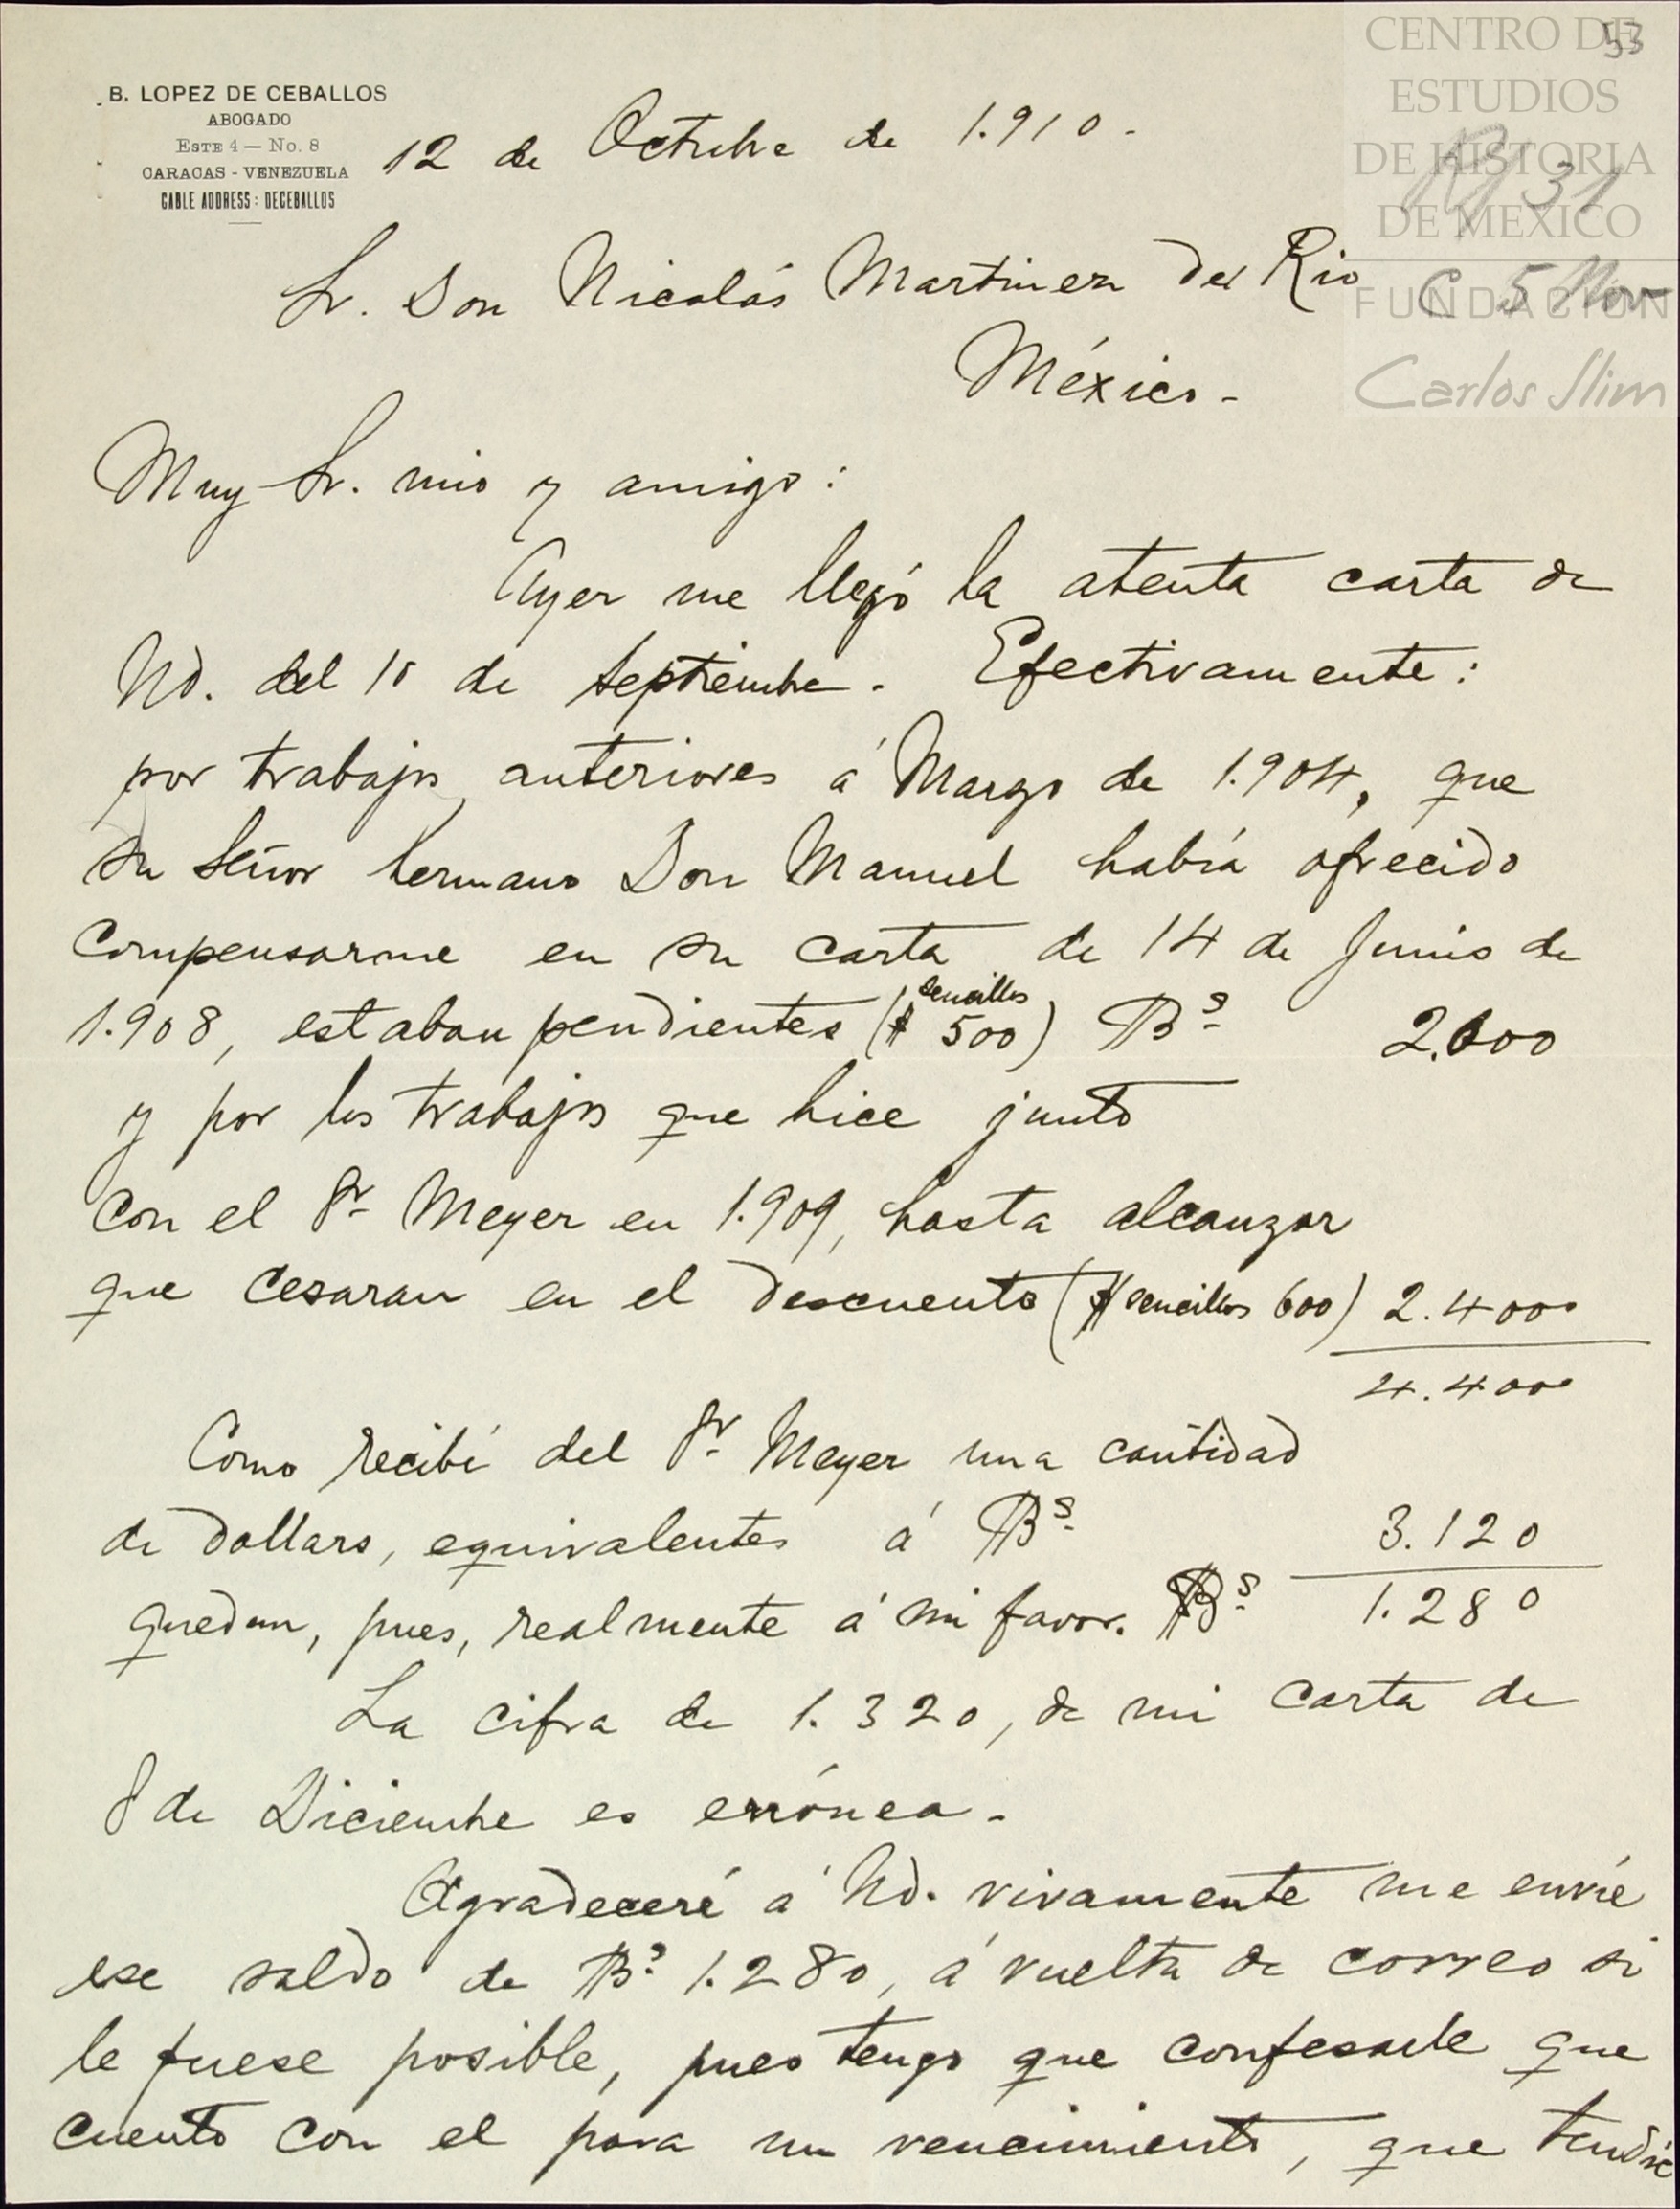 53
CENTRO DE
ESTUDIOS
DE HISTORIA
DE MEXICO
FUNDACION
Carlos Slim
R 31
C 5 Nov
B. LOPEZ DE CEBALLOS
ABOGADO
ESTE 4 — No. 8
CARACAS - VENEZUELA
CABLE ADDRESS: DECEBALLOS
12 de Octubre de 1.910.-
Sr. Don Nicolás Martinez del Rio
México-
Muy Sr. mio y amigo:
Ayer me llegó la atenta carta de
Ud. del 10 de Septiembre. Efectivamente:
por trabajos anteriores á Marzo de 1.904, que
su Señor hermano Don Manuel había ofrecido
compensarme en su carta de 14 de Junio de
1.908, estaban pendientes ($ sencillos 500) Bs. 2.000
y por los trabajos que hice junto
con el Sr. Meyer en 1.909, hasta alcanzar
que cesaran en el descuento ($ sencillos 600) 2.400
4.400
Como recibí del Sr. Meyer una cantidad
de dollars, equivalentes á Bs. 3.120
quedan, pues, realmente á mi favor. Bs. 1.280
La cifra de 1.320, de mi carta de
8 de Diciembre es errónea.-
Agradeceré á Ud. vivamente me envíe
ese saldo de Bs. 1.280, á vuelta de correo si
le fuese posible, pues tengo que confesarle que
cuento con el para un vencimiento, que tendré